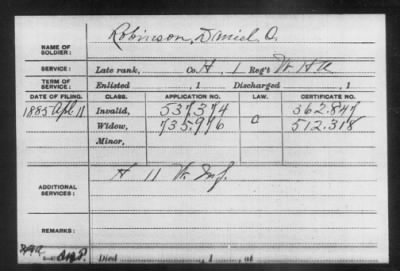 NAME OF SOLDIER: Robinson, Daniel O.
SERVICE: Late rank, Co. H, 1 Reg't
TERM OF SERVICE: Enlisted , 1 Discharged , 1
DATE OF FILING. CLASS. APPLICATION NO. LAW. CERTIFICATE NO.
1885 Apl. 11 Invalid, 537,374 362.847
Widow, 735,976 512.318
Minor,
ADDITIONAL SERVICES: H 11 Inf.
REMARKS:
Died , 1 , at